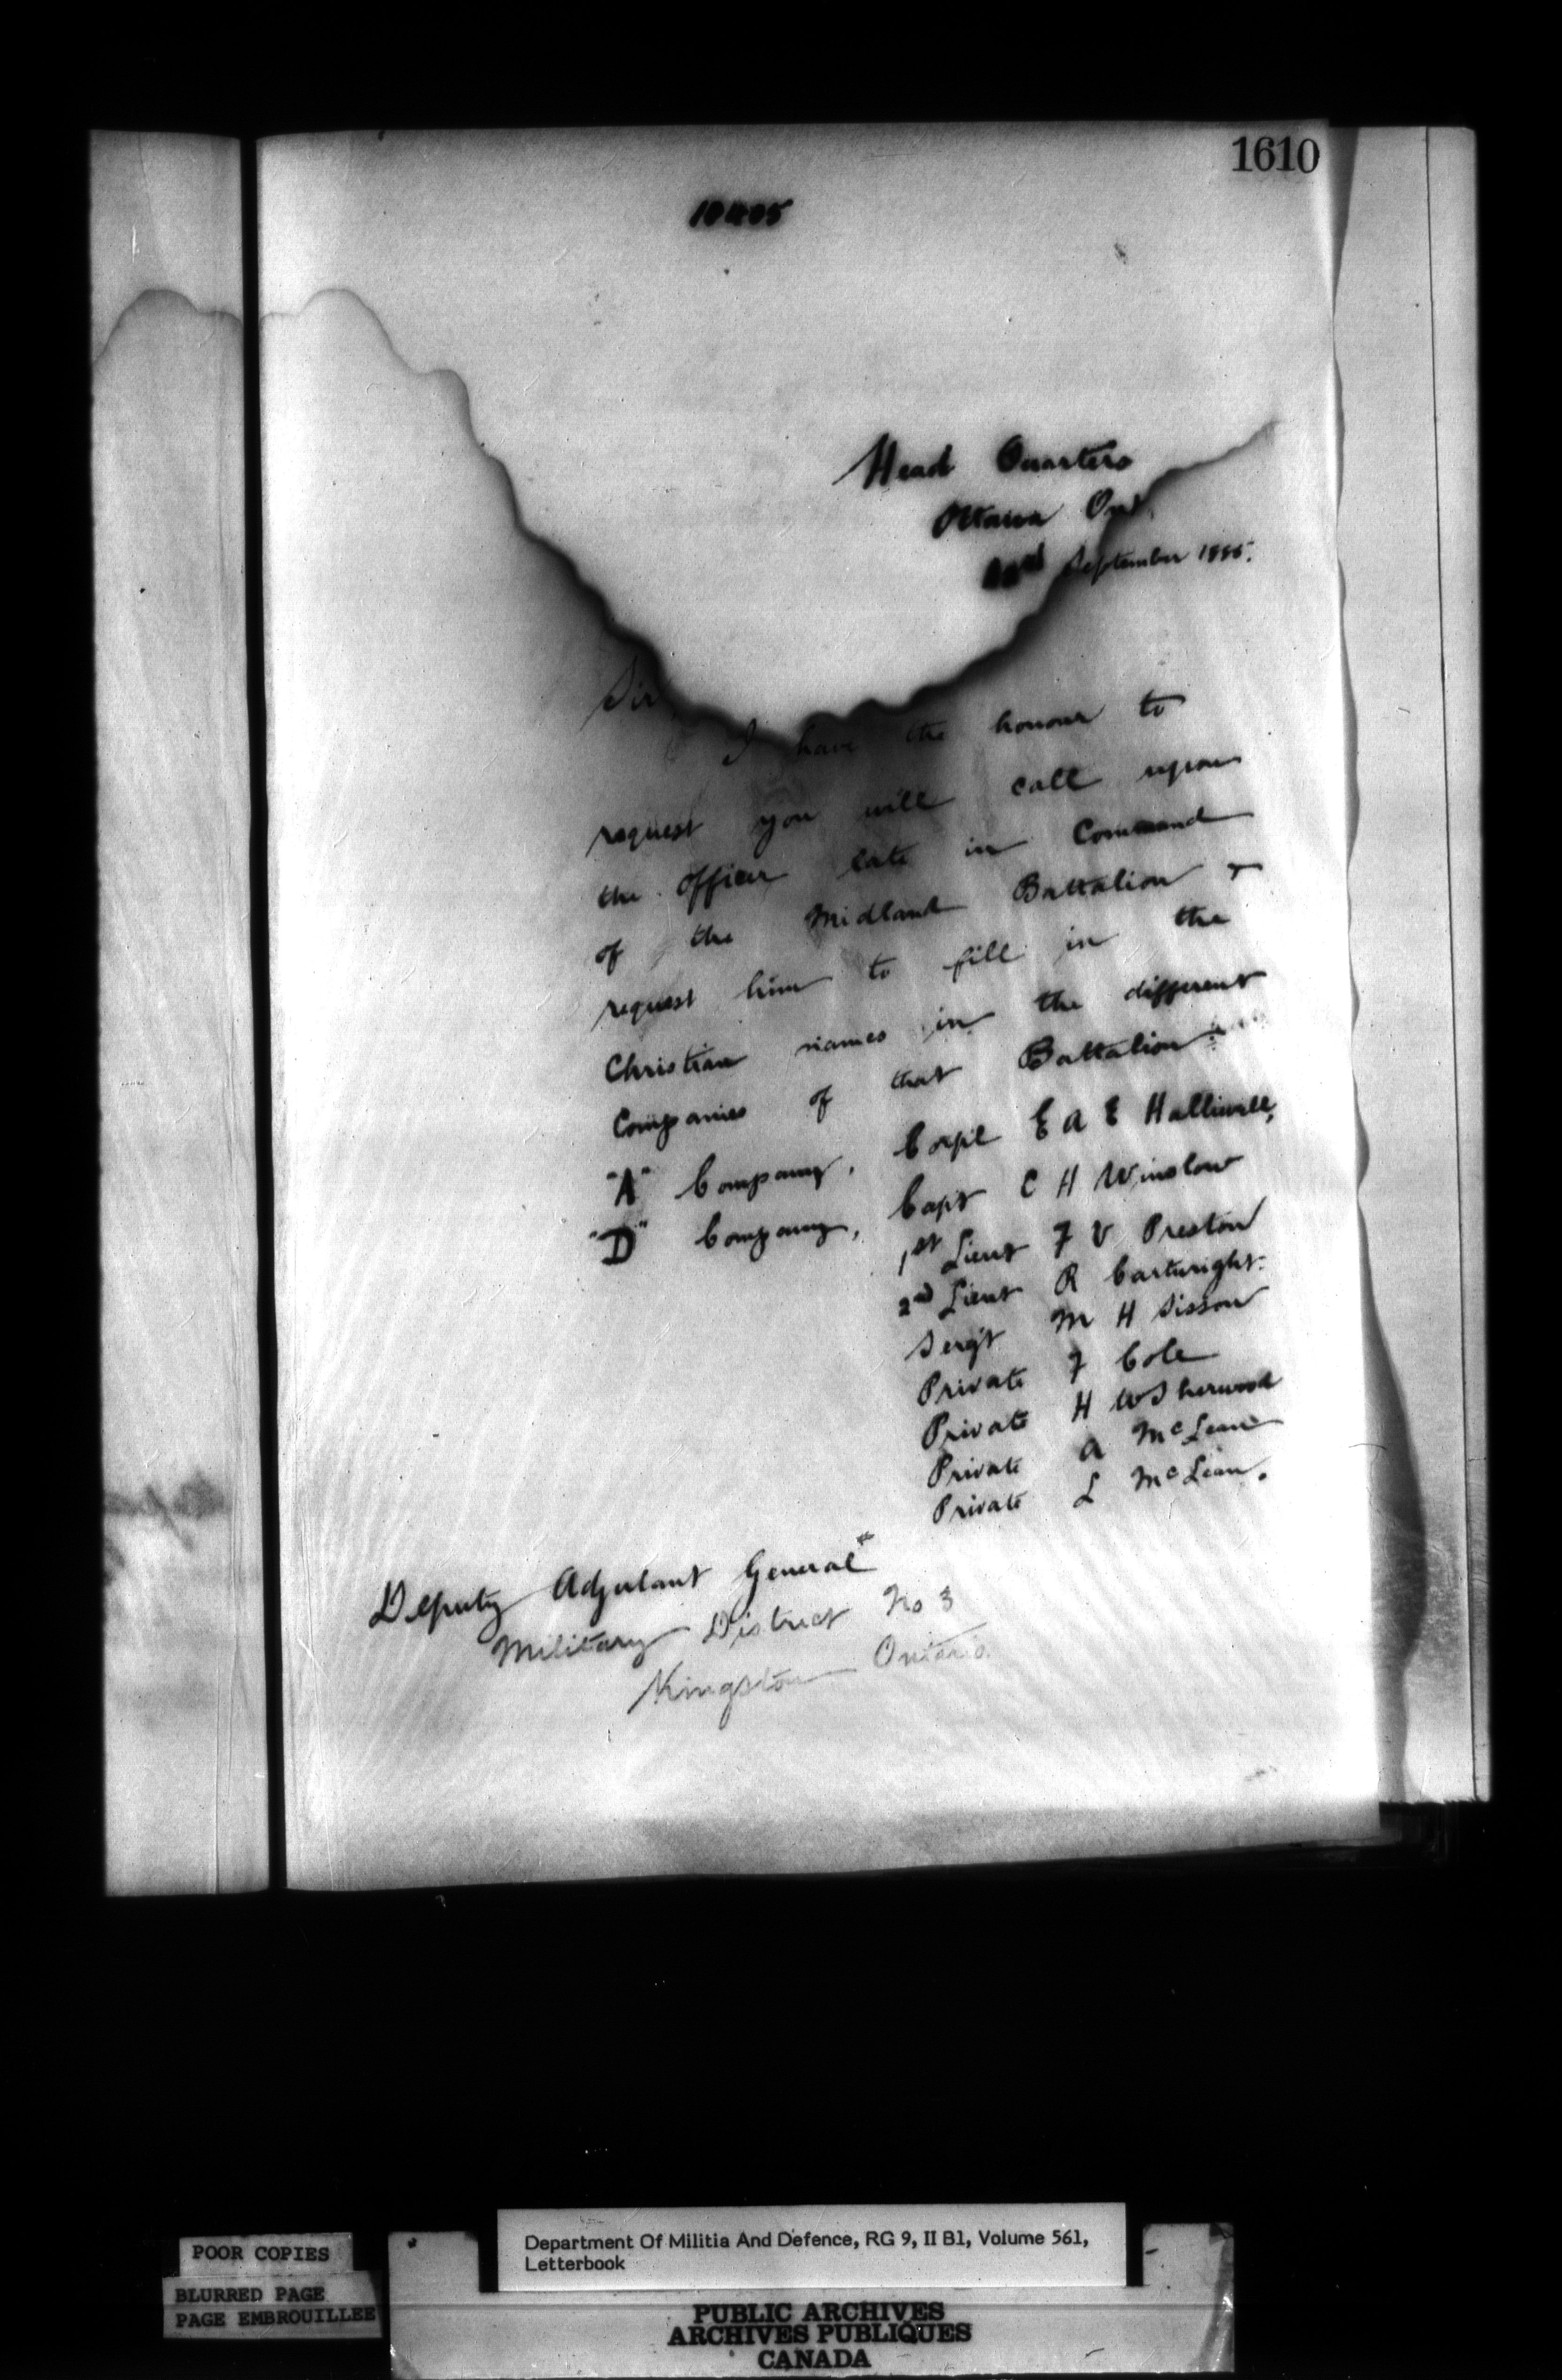 1610
10405
Head Quarters
Ottawa Ont
September 1885.
Sir
I have the honour to
request you will call upon
the officer late in Command
of the Midland Battalion &
request him to fill in the
Christian names in the different
Companies of that Battalion:
"A" Company, Corpl E A E Halliwell,
"D" Company, Capt C H Winslow
1st Lieut F V Preston
2nd Lieut R Cartwright.
Sergt M H Sisson
Private F Cole
Private H W Sherwood
Private A McLean
Private L McLean.
Deputy Adjutant General
Military District No 3
Kingston Ontario.
Department Of Militia And Defence, RG 9, II B1, Volume 561,
Letterbook
POOR COPIES
BLURRED PAGE
PAGE EMBROUILLEE
PUBLIC ARCHIVES
ARCHIVES PUBLIQUES
CANADA